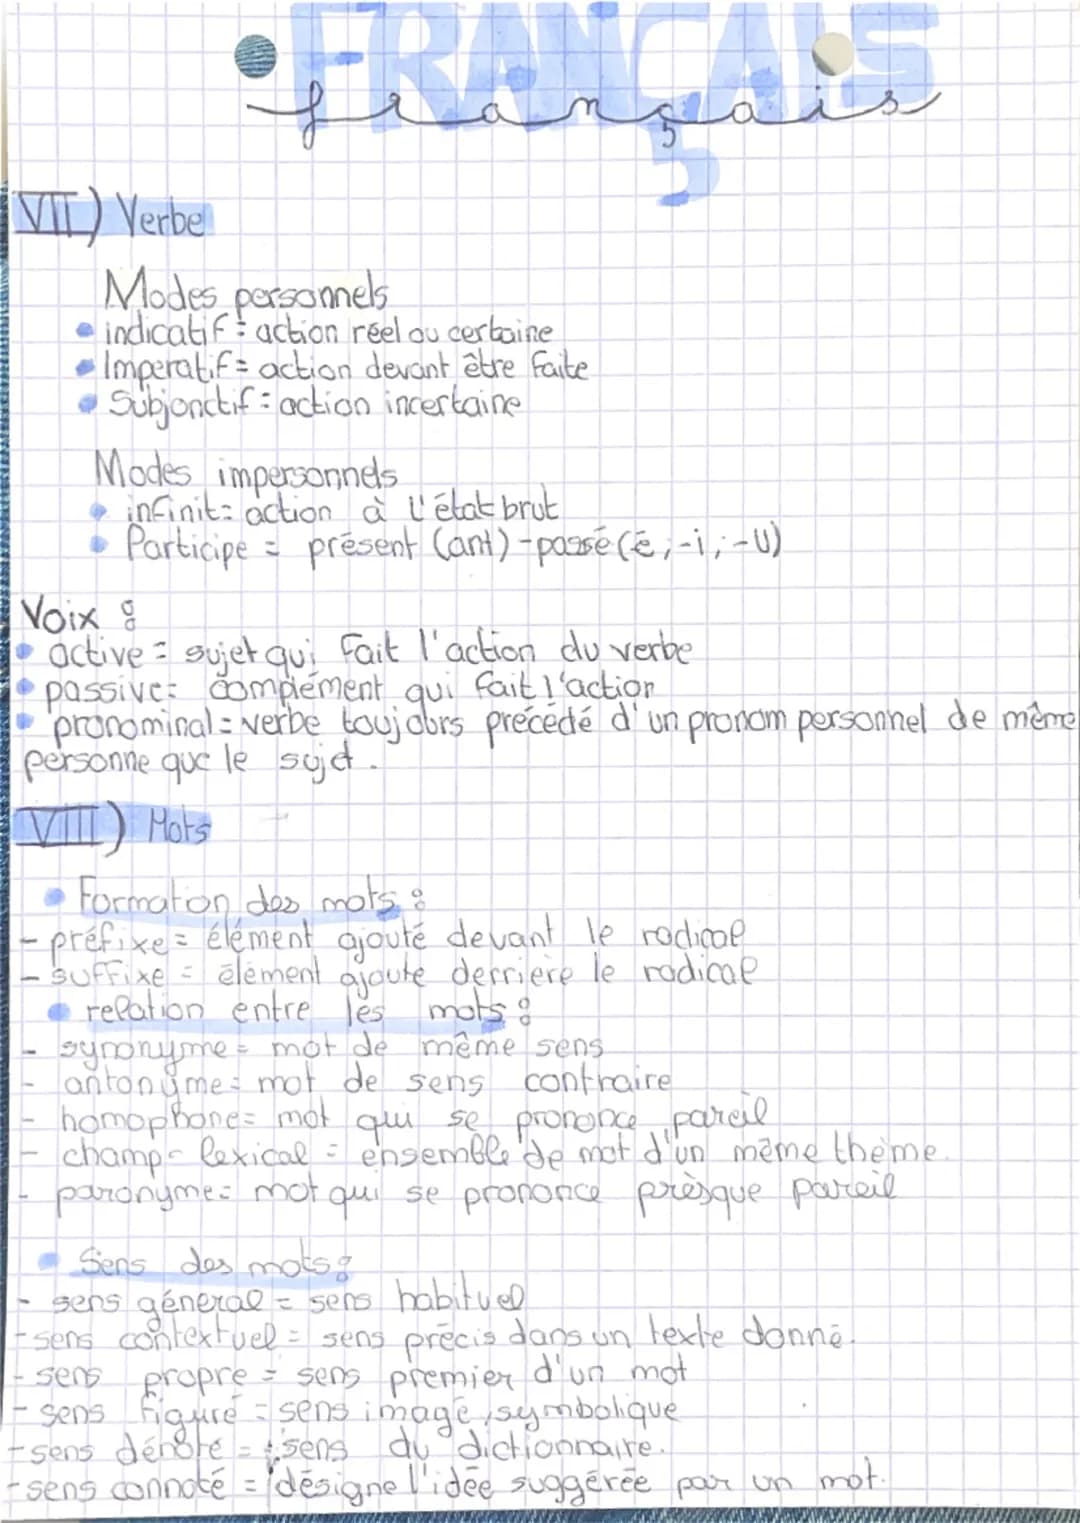 FRANÇAIS
français
VII) Verbe
Modes personnels
• indicatif = action réel ou certaine
• Imperatif = action devant être faite
• Subjonctif = action incertaine
Modes impersonnels
• infinit = action à l'état brut
• Participe = présent (ant) - passé (é ; -i ; -u)
Voix :
• active = sujet qui fait l'action du verbe
• passive = complément qui fait l'action
• pronominal = verbe toujours précédé d'un pronom personnel de même
personne que le sujet.
VIII) Mots
• Formation des mots :
- préfixe = élément ajouté devant le radical
- suffixe = élément ajoute derriere le radical
• relation entre les mots :
- synonyme = mot de même sens
- antonyme = mot de sens contraire
- homophone = mot qui se prononce pareil
- champ-lexical = ensemble de mot d'un même thème.
- paronyme = mot qui se prononce prèsque pareil
• Sens des mots :
- sens général = sens habituel
- sens contextuel = sens précis dans un texte donné.
- sens propre = sens premier d'un mot
- sens figuré = sens imagé, symbolique
- sens dénoté = sens du dictionnaire.
- sens connoté = désigne l'idée suggérée par un mot.